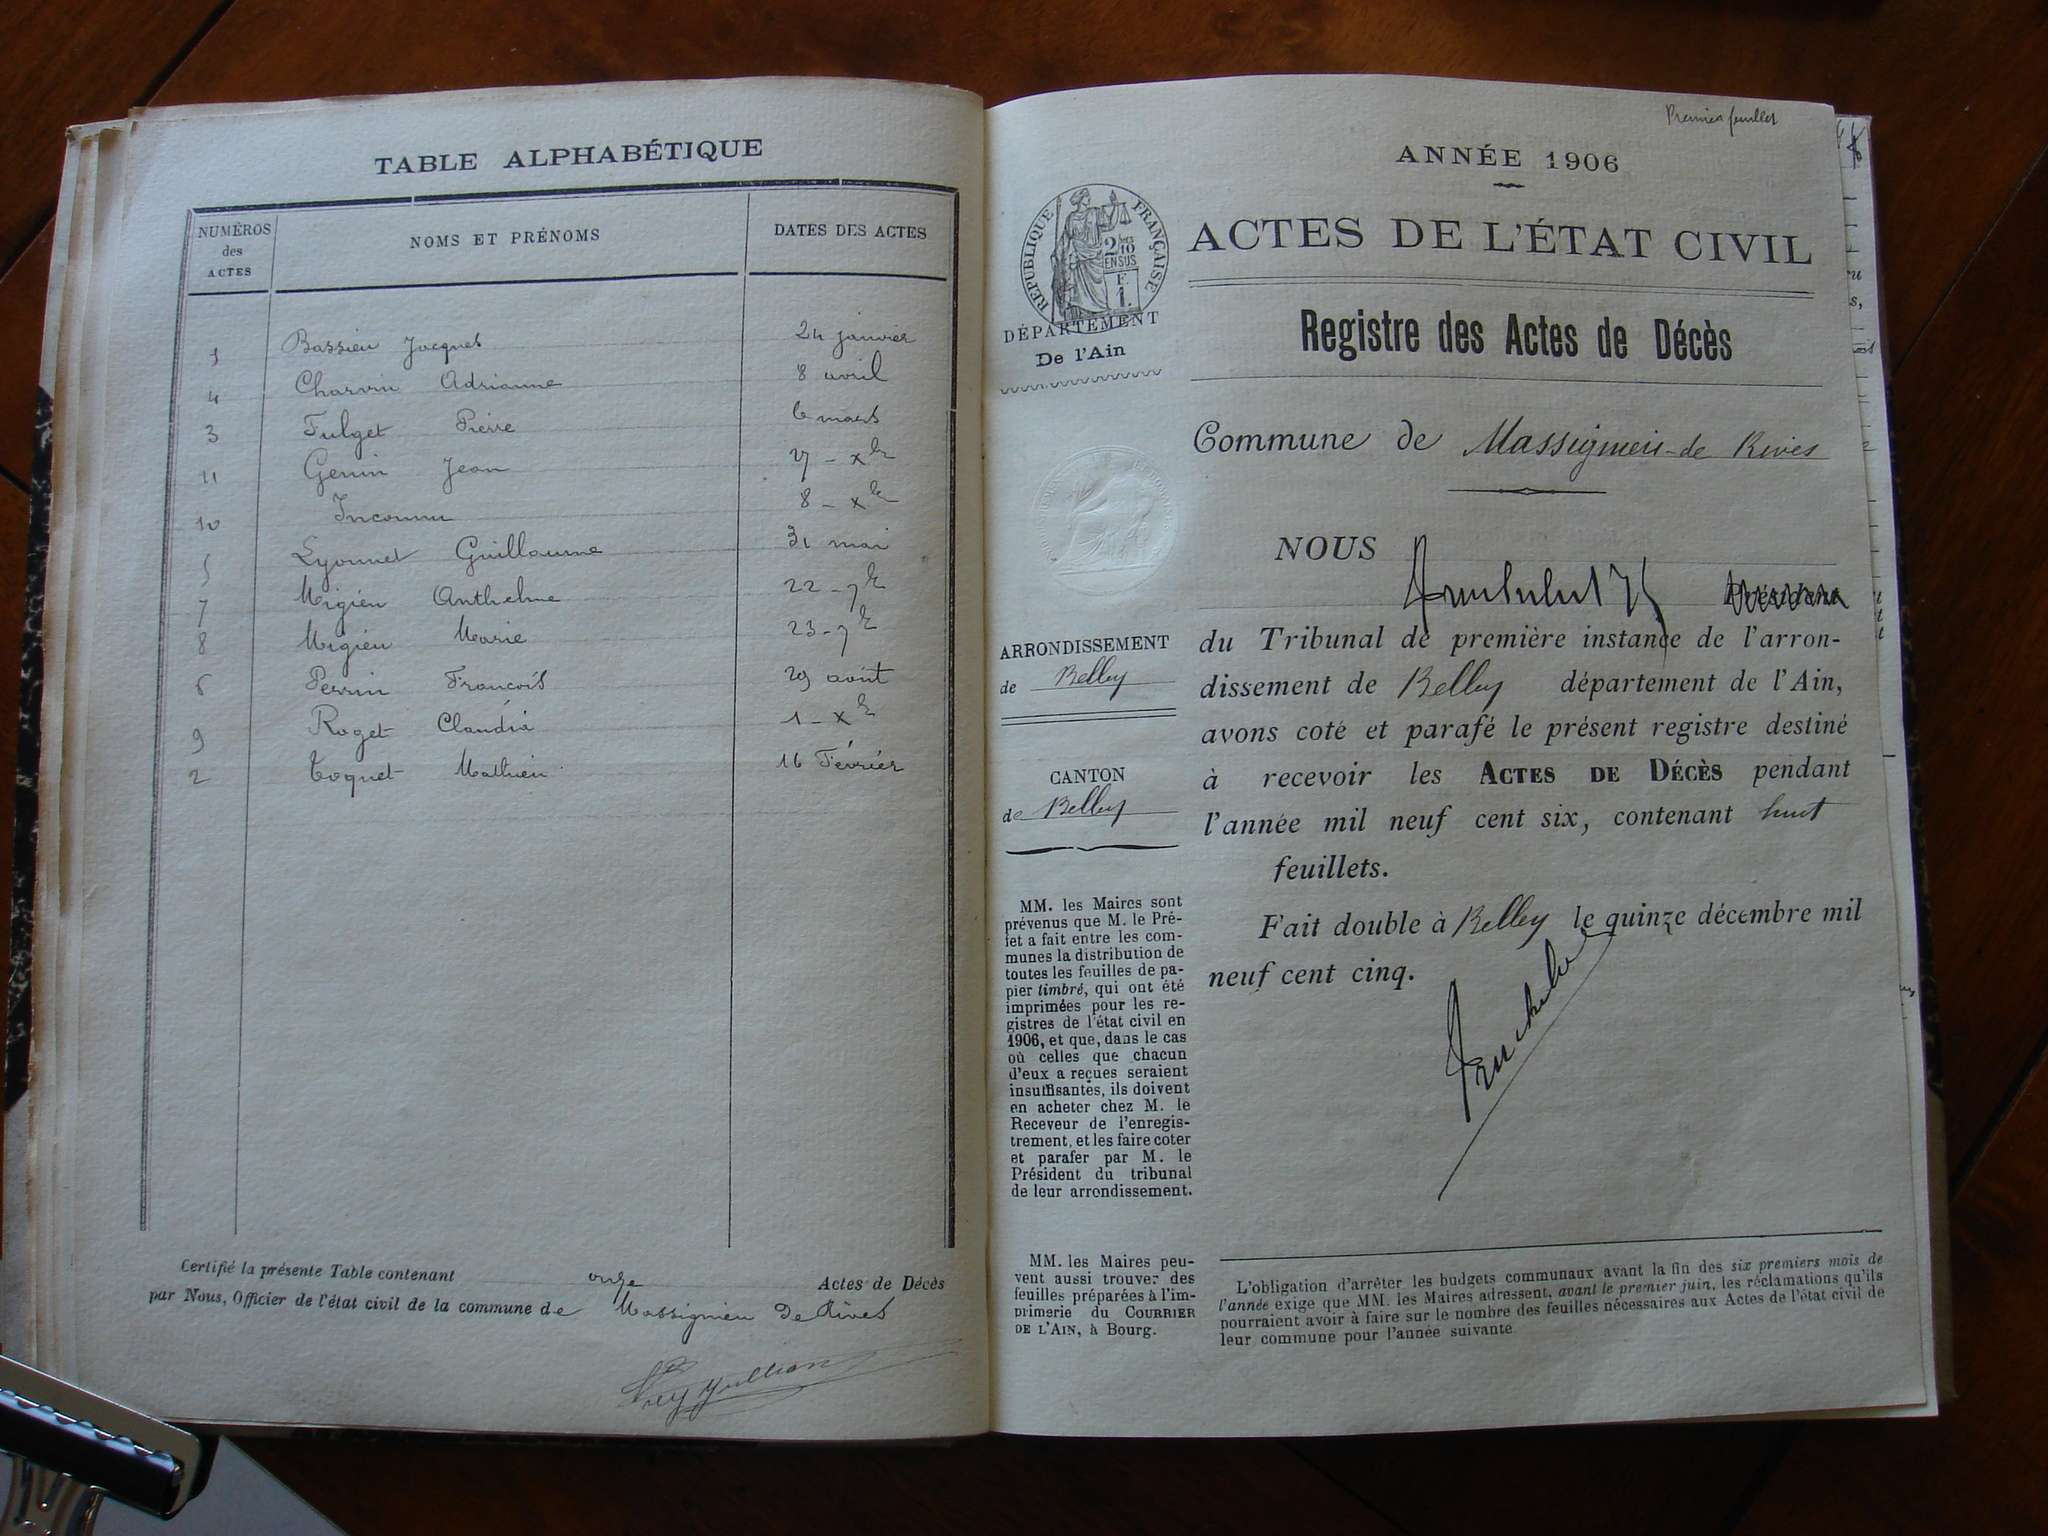 TABLE ALPHABÉTIQUE
NUMÉROS des ACTES NOMS ET PRÉNOMS DATES DES ACTES
1 Bassieu Jacques 24 janvier
4 Charvin Adrianne 8 avril
3 Fulget Pierre 6 mars
11 Genin Jean 27 - xbre
10 Inconnu 8 - xbre
5 Lyonnet Guillaume 31 mai
7 Migieu Anthelme 22 - 7bre
8 Migieu Marie 23 - 7bre
6 Perrin François 29 août
9 Roget Claudia 1 - xbre
2 Toquet Mathieu 16 Février
Certifié la présente Table contenant onze Actes de Décès
par Nous, Officier de l'état civil de la commune de Massignieu de Rives
Premier feuillet
ANNÉE 1906
RÉPUBLIQUE FRANÇAISE
2/10 EN SUS
F. 1.
DÉPARTEMENT
De l'Ain
ACTES DE L'ÉTAT CIVIL
Registre des Actes de Décès
Commune de Massignieu-de Rives
NOUS Président
du Tribunal de première instance de l'arron-
dissement de Belley département de l'Ain,
avons coté et parafé le présent registre destiné
à recevoir les ACTES DE DÉCÈS pendant
l'année mil neuf cent six, contenant huit
feuillets.
Fait double à Belley le quinze décembre mil
neuf cent cinq.
ARRONDISSEMENT
de Belley
CANTON
de Belley
MM. les Maires sont
prévenus que M. le Pré-
fet a fait entre les com-
munes la distribution de
toutes les feuilles de pa-
pier timbré, qui ont été
imprimées pour les re-
gistres de l'état civil en
1906, et que, dans le cas
où celles que chacun
d'eux a reçues seraient
insuffisantes, ils doivent
en acheter chez M. le
Receveur de l'enregis-
trement, et les faire coter
et parafer par M. le
Président du tribunal
de leur arrondissement.
MM. les Maires peu-
vent aussi trouver des
feuilles préparées à l'im-
primerie du COURRIER
DE L'AIN, à Bourg.
L'obligation d'arrêter les budgets communaux avant la fin des six premiers mois de
l'année exige que MM. les Maires adressent, avant le premier juin, les réclamations qu'ils
pourraient avoir à faire sur le nombre des feuilles nécessaires aux Actes de l'état civil de
leur commune pour l'année suivante